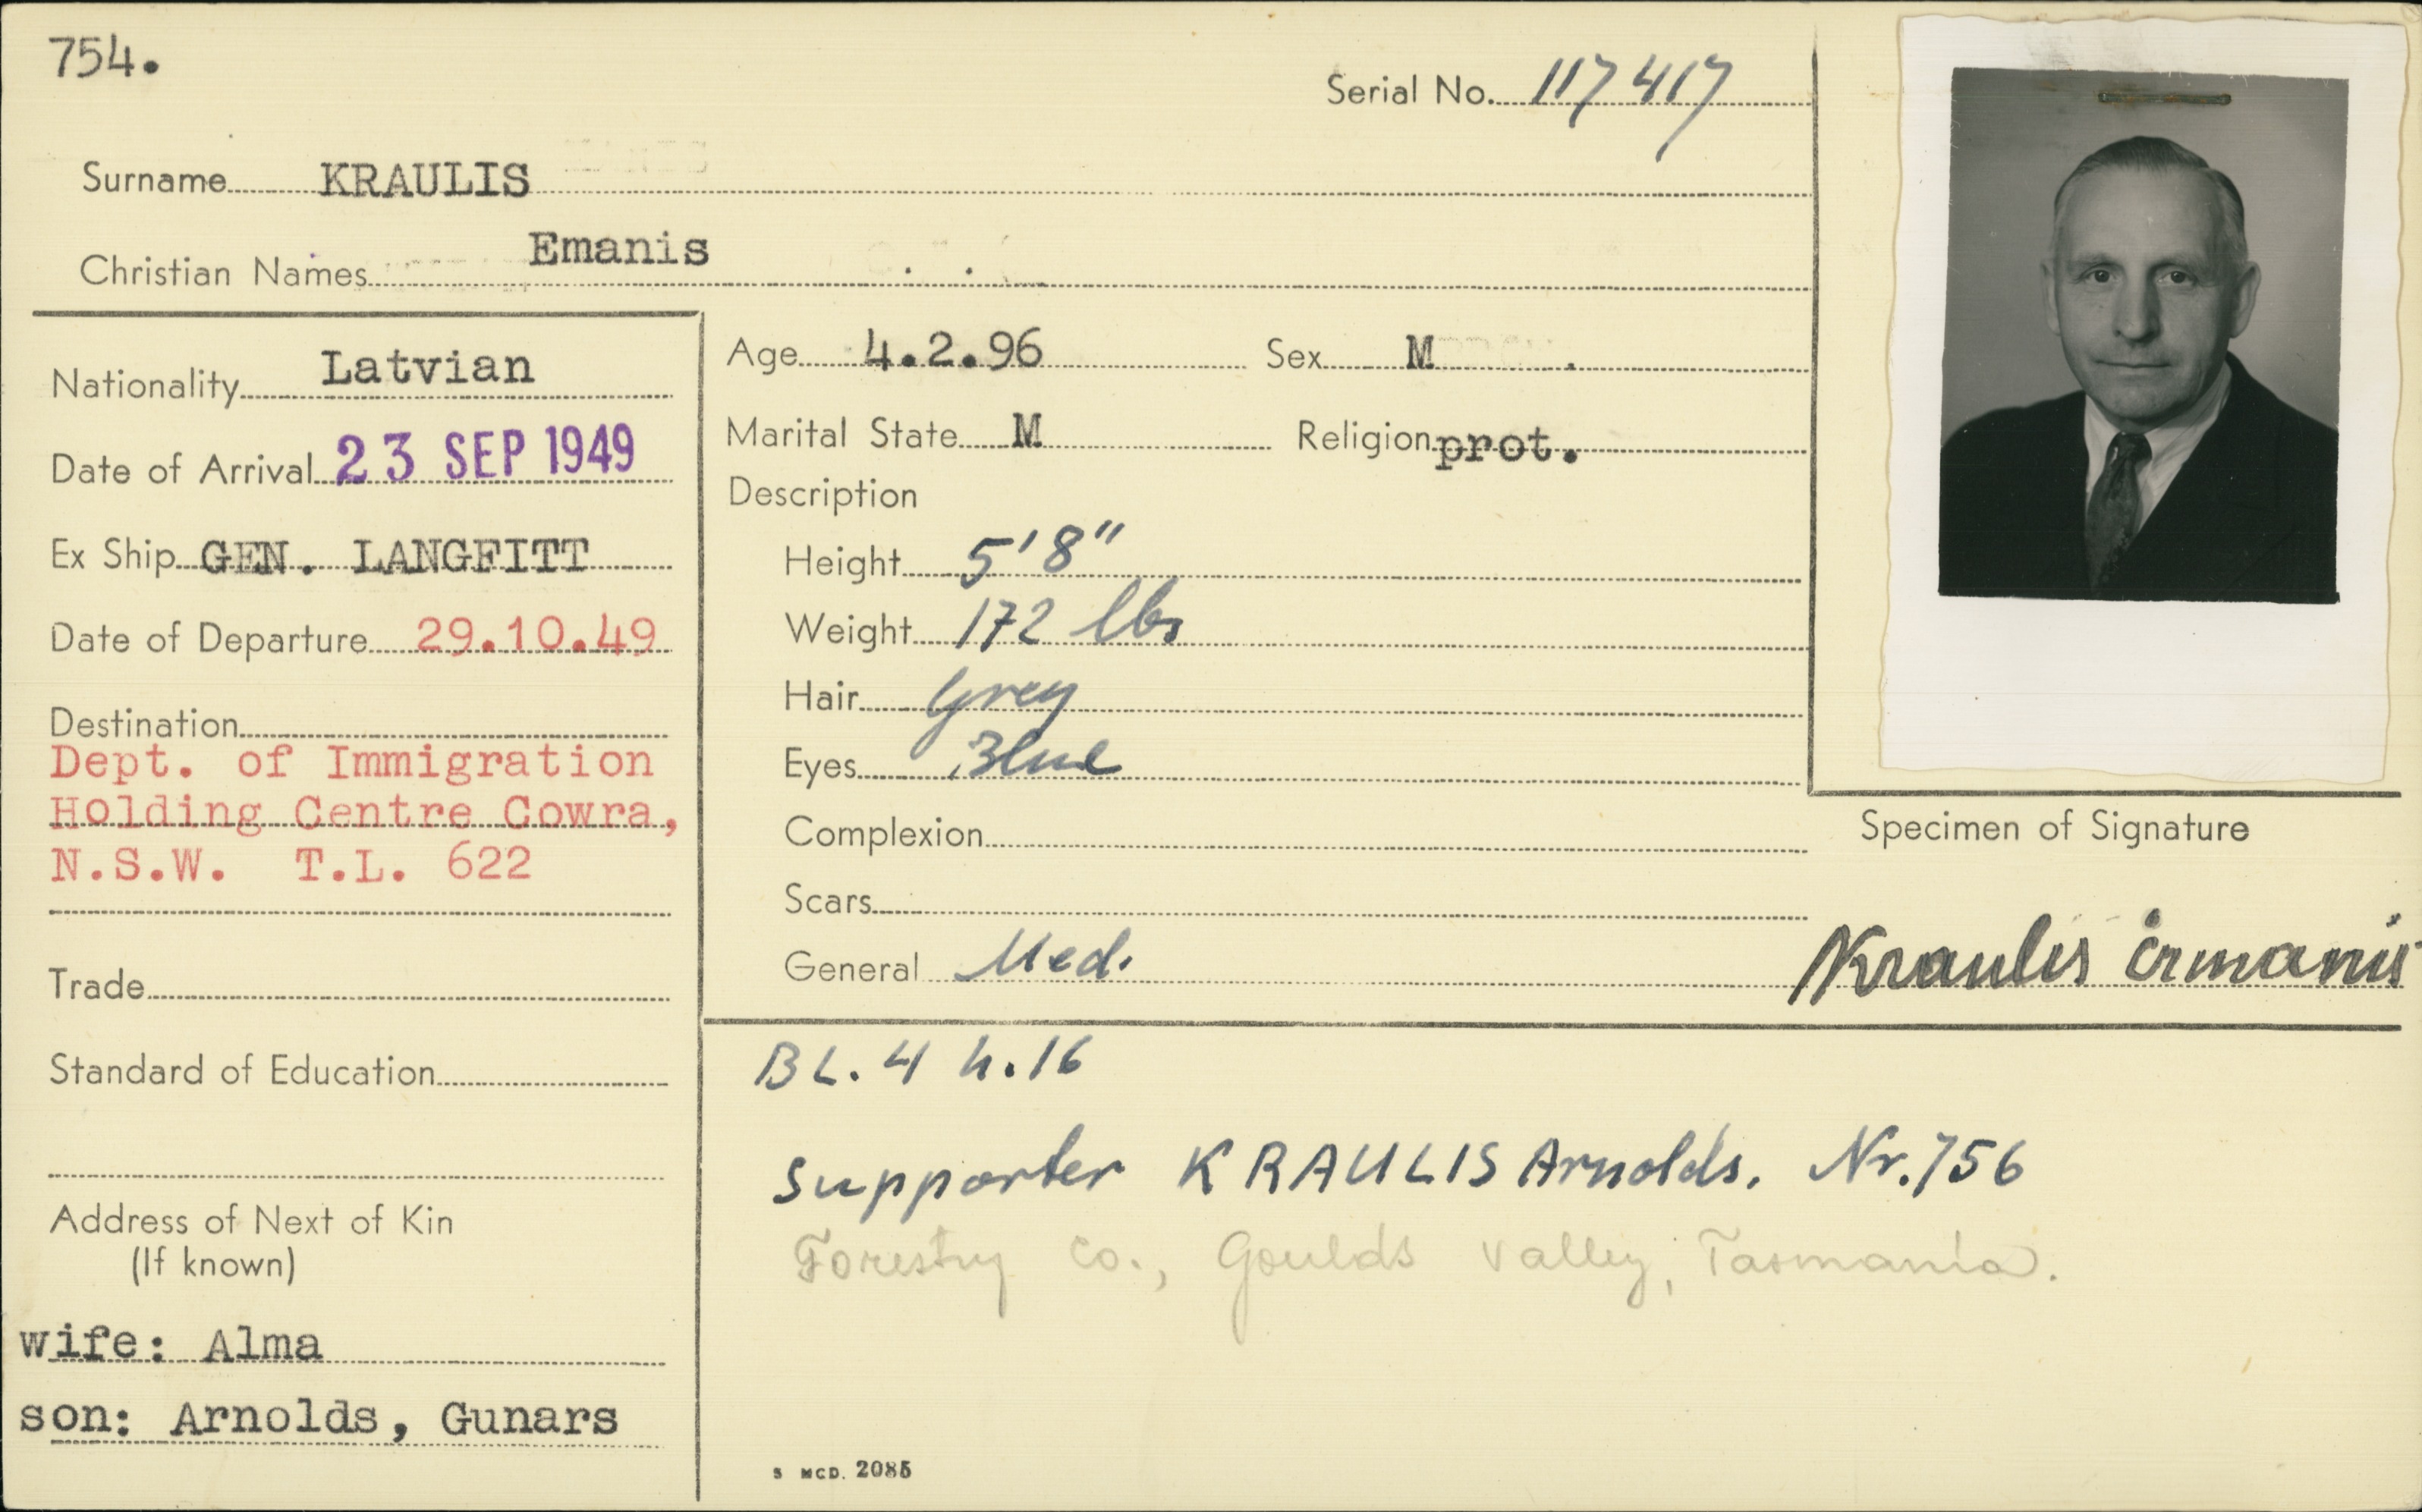 754.
Serial No. 117417
Surname KRAULIS
Christian Names Emanis
Nationality Latvian
Date of Arrival 23 SEP 1949
Ex Ship GEN. LANGFITT
Date of Departure 29.10.49
Destination
Dept. of Immigration
Holding Centre Cowra,
N.S.W. T.L. 622
Trade
Standard of Education
Address of Next of Kin
(If known)
wife: Alma
son: Arnolds, Gunars
Age 4.2.96 Sex M
Marital State M Religion prot.
Description
Height 5'8"
Weight 172 lbs
Hair Grey
Eyes Blue
Complexion
Scars
General Med.
Specimen of Signature
Kraulis Ermanis
BL. 4 h.16
Supporter KRAULIS Arnolds. Nr. 756
Forestry Co., Goulds Valley, Tasmania.
S MCD. 2085